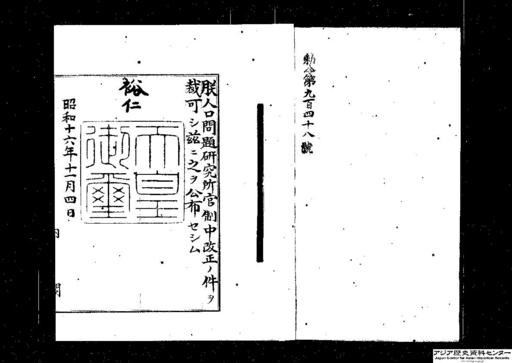 勅令第九百四十八號
朕人口問題研究所官制中改正ノ件ヲ
裁可シ茲ニ之ヲ公布セシム
裕仁
天皇
御璽
昭和十六年十一月四日
内
閣
アジア歴史資料センター
Japan Center for Asian Historical Records